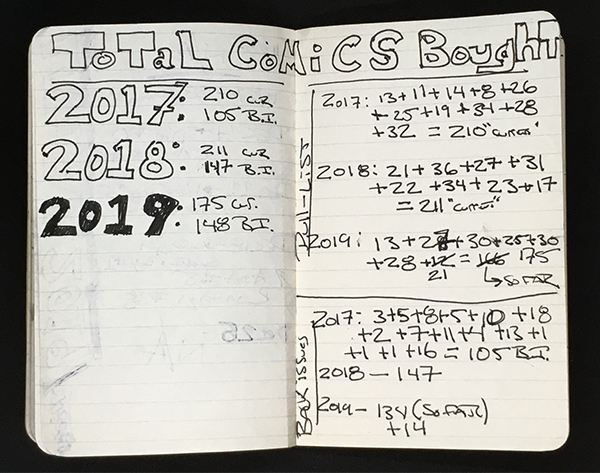 ToTaL CoMiCS BoughT
2017: 210 CUR
105 B.I.
2018: 211 CUR
147 B.I.
2019: 175 CUR.
148 B.I.
Pull-LiST
2017: 13+11+14+8+26
+25+19+34+28
+32 = 210 "current"
2018: 21+36+27+31
+22+34+23+17
= 211 "current"
2019: 13+27+30+25+30
+28+12=166 175
21 ↳SO FAR
BACK iSSUES
2017: 3+5+8+5+10+18
+2+7+11+4+13+1
+1+1+16=105 B.I.
2018 - 147
2019 - 134 (SO FAR)
+14